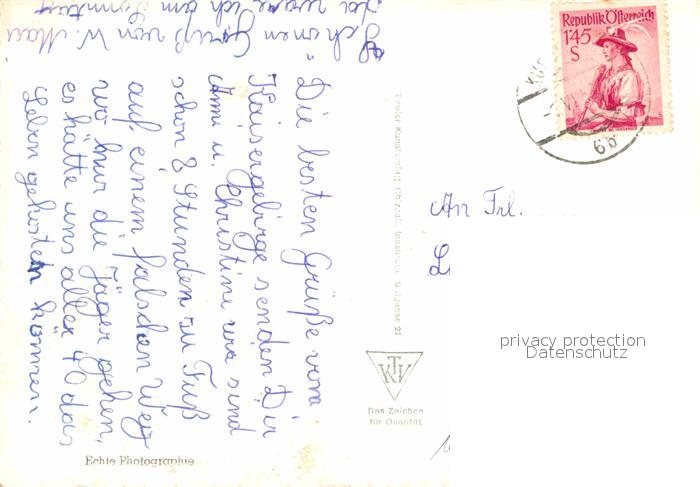 Die besten Grüße vom
Kaisergebirge senden Dir
Anni u. Christine wir sind
schon 8 Stunden zu Fuß
auf einem falschen Weg
wo nur die Jäger gehen,
es hätte uns allen das
Leben gekostet können.
Schönen Gruß von W.
da war ich am Sonntag
Tiroler Kunstverlag Chizzali, Innsbruck
KTV
Das Zeichen
für Qualität
Echte Photographie
Republik Österreich
1'45
S
66
An Frl.
privacy protection
Datenschutz